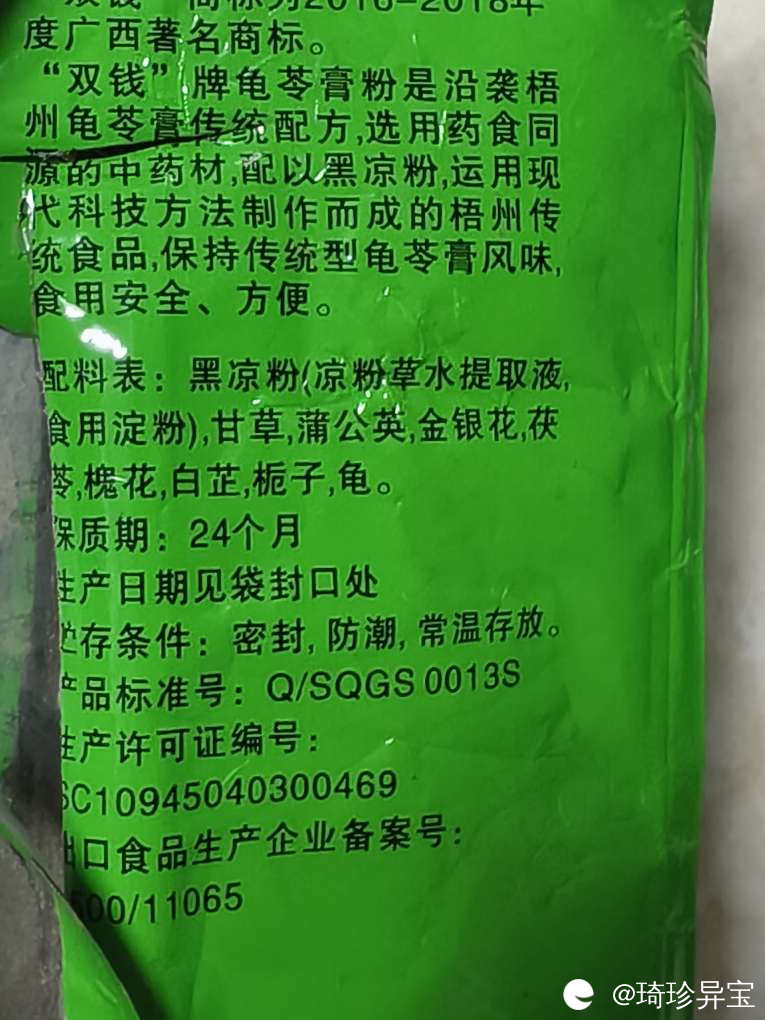 “双钱”商标为2016-2018年
度广西著名商标。
“双钱”牌龟苓膏粉是沿袭梧
州龟苓膏传统配方,选用药食同
源的中药材,配以黑凉粉,运用现
代科技方法制作而成的梧州传
统食品,保持传统型龟苓膏风味,
食用安全、方便。
配料表：黑凉粉(凉粉草水提取液,
食用淀粉),甘草,蒲公英,金银花,茯
苓,槐花,白芷,栀子,龟。
保质期：24个月
生产日期见袋封口处
贮存条件：密封,防潮,常温存放。
产品标准号：Q/SQGS 0013S
生产许可证编号：
SC10945040300469
出口食品生产企业备案号：
500/11065
@琦珍异宝